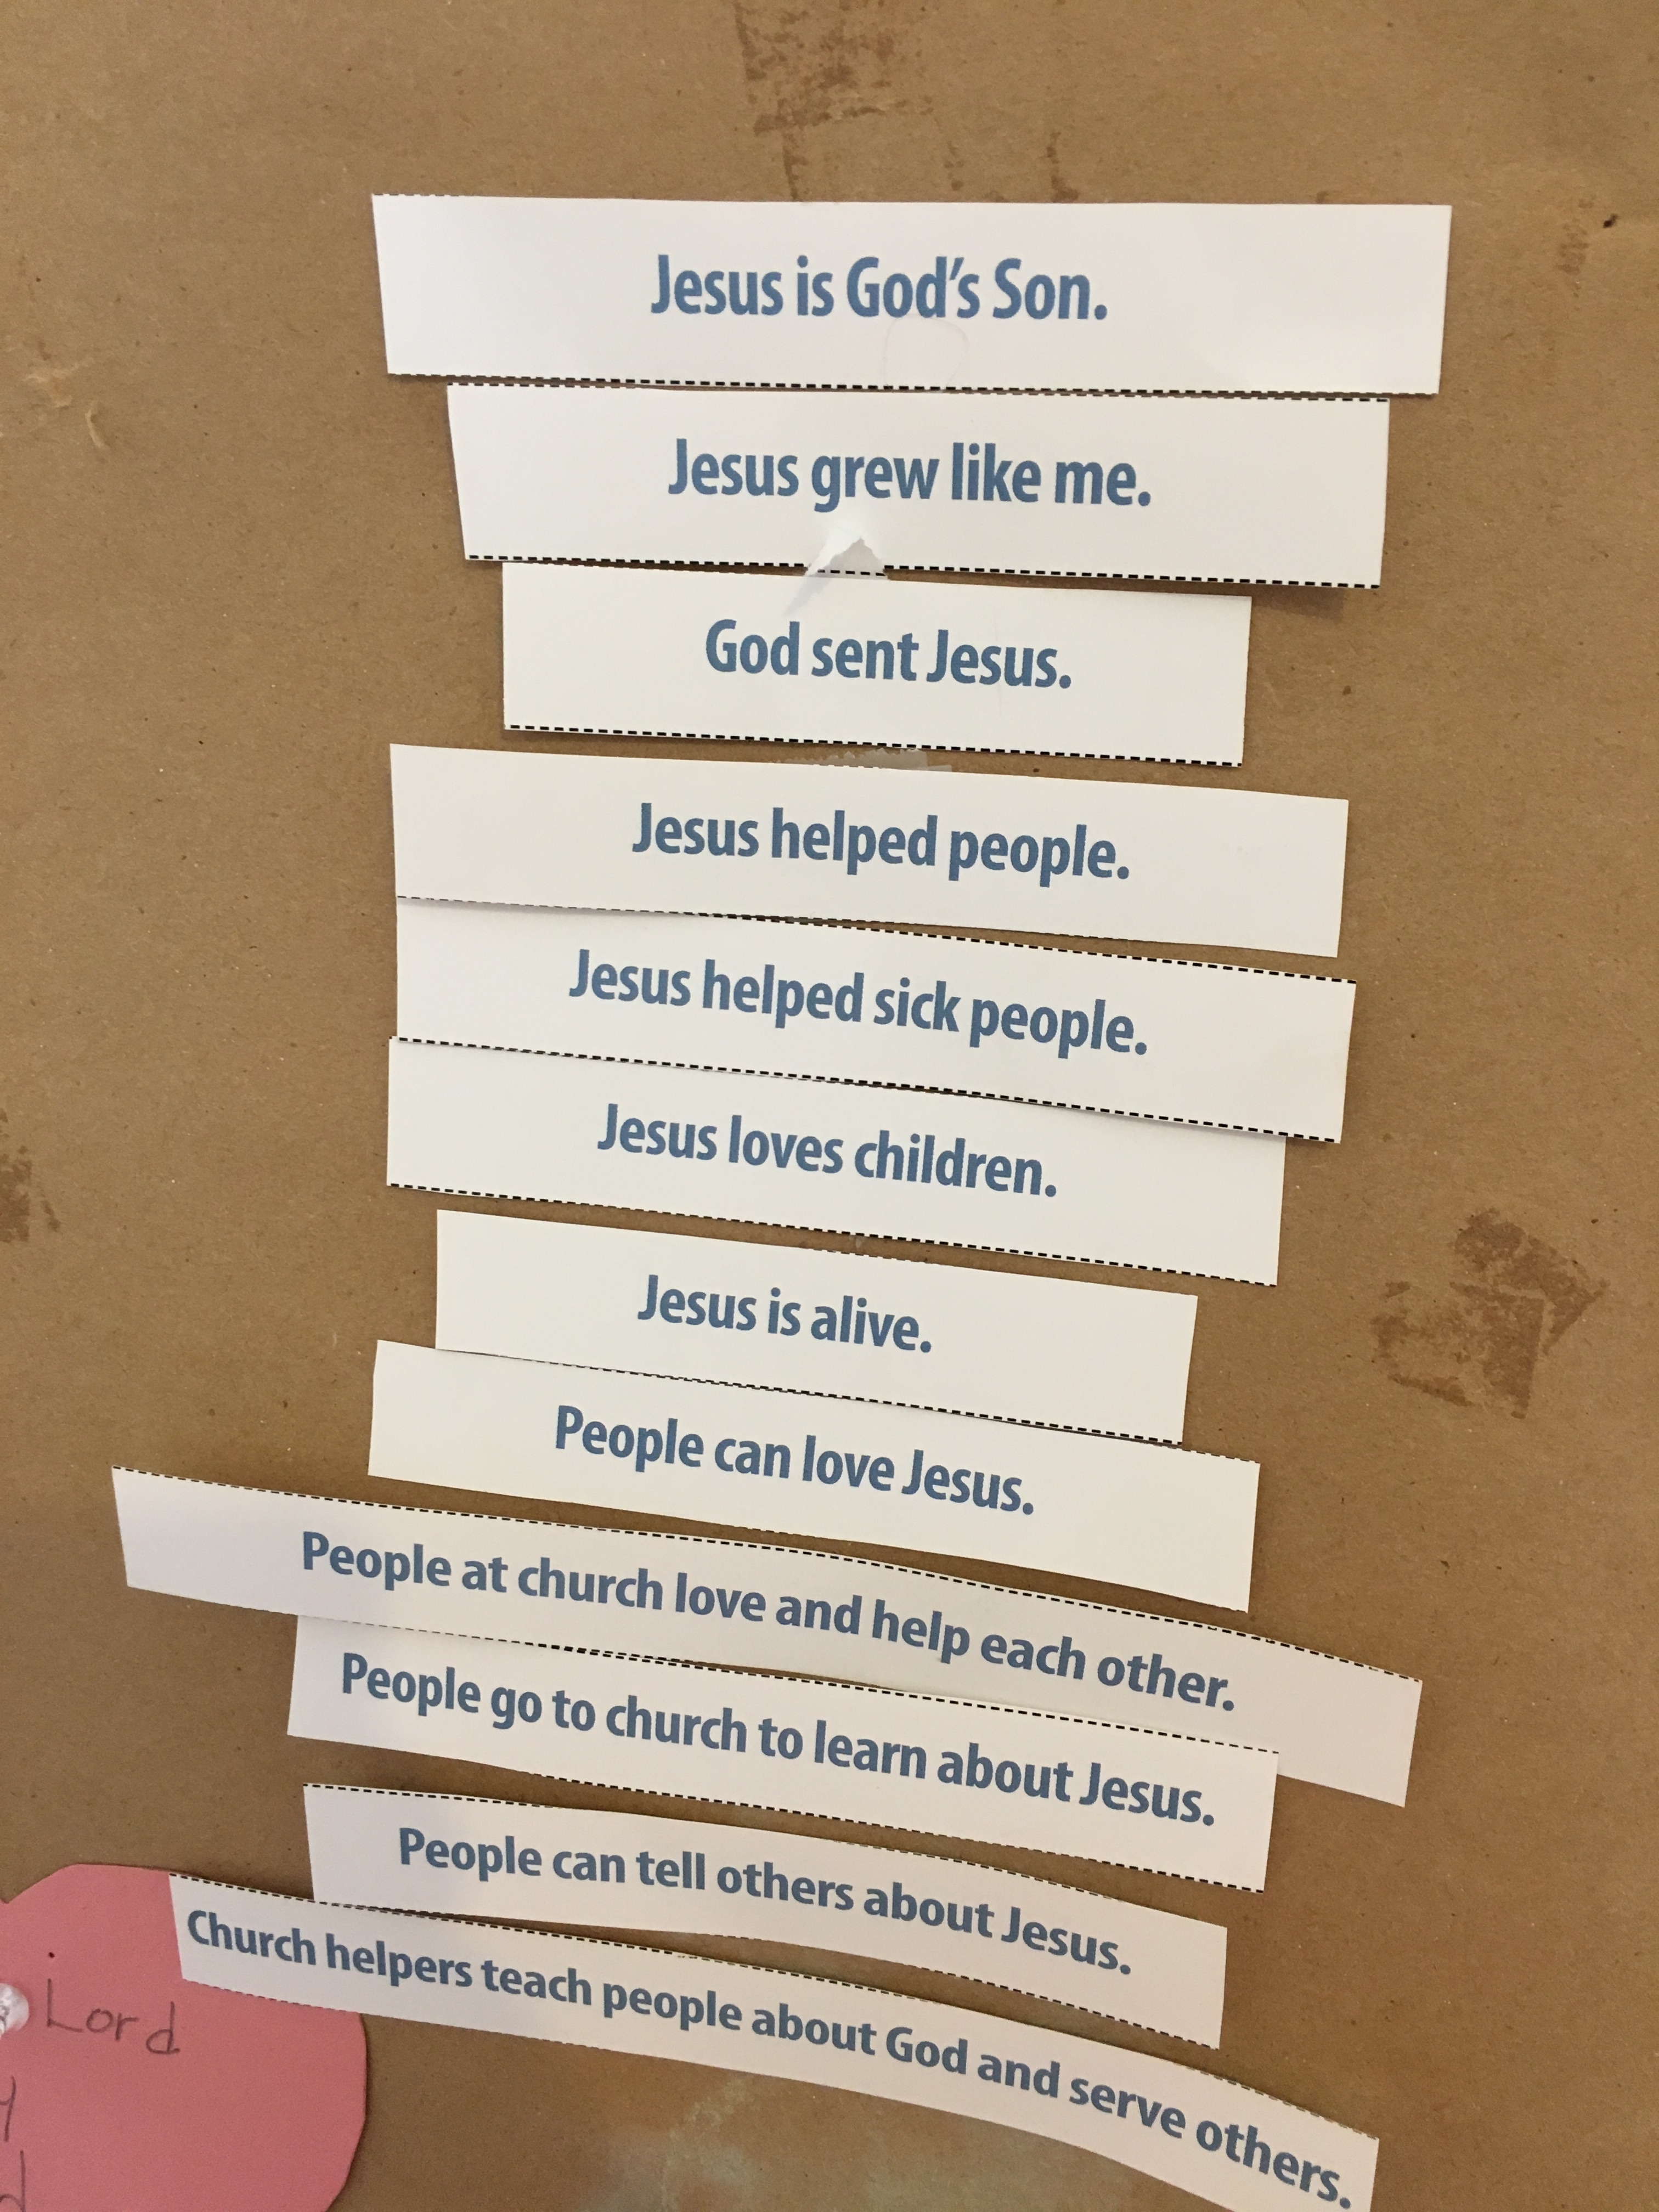 Jesus is God's Son.
Jesus grew like me.
God sent Jesus.
Jesus helped people.
Jesus helped sick people.
Jesus loves children.
Jesus is alive.
People can love Jesus.
People at church love and help each other.
People go to church to learn about Jesus.
People can tell others about Jesus.
Church helpers teach people about God and serve others.
Lord